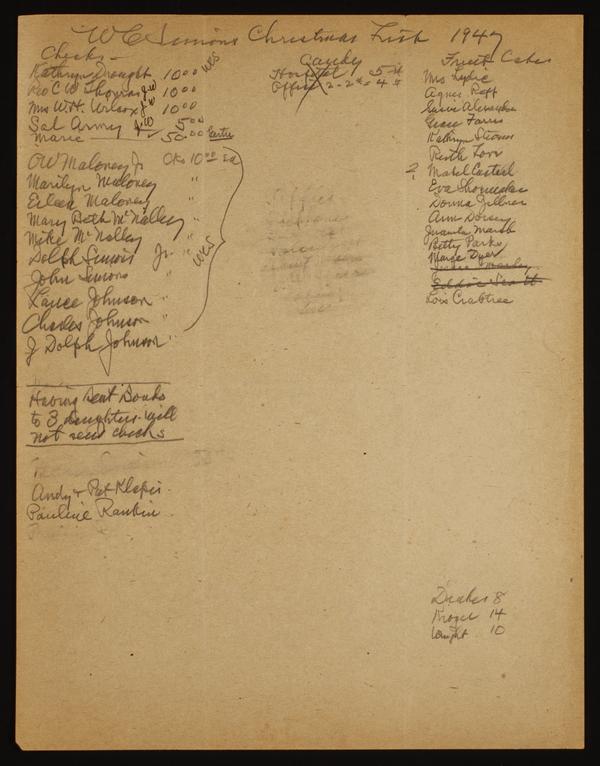 W C Simons Christmas List 1947
Checks -
Kathryn Drought 10.00 WCS
Rev C W Thomas JW 10.00
Mrs W.H. Wilcox JW 10.00
Sal Army JW 5.00
Marie 50.00
OW Maloney Jr Cks 10.00 ea
Marilyn Maloney "
Eileen Maloney "
Mary Beth McNalley "
Mike McNalley "
Dolph Simons Jr. " WCS
John Simons "
Lance Johnson "
Charles Johnson "
J Dolph Johnson "
Having sent Bonds
to 3 daughters will
not send checks
Andy & Pat Klafis
Pauline Rankin
Candy
Hospital 5 #
Office 2 - 2# = 4 #
Fruit Cakes
Mrs Lydic
Agnes Ropp
Susie Alexander
Gene Farris
Kathryn Simons
Ruth Torr
2 Mabel Casteel
Eva Shoemaker
Donna
Ann Dorsey
Juanita Marsh
Betty Parks
Marge Dyer
Eddie Scott
Lois Crabtree
Drakes 8
Kroger 14
Wright 10